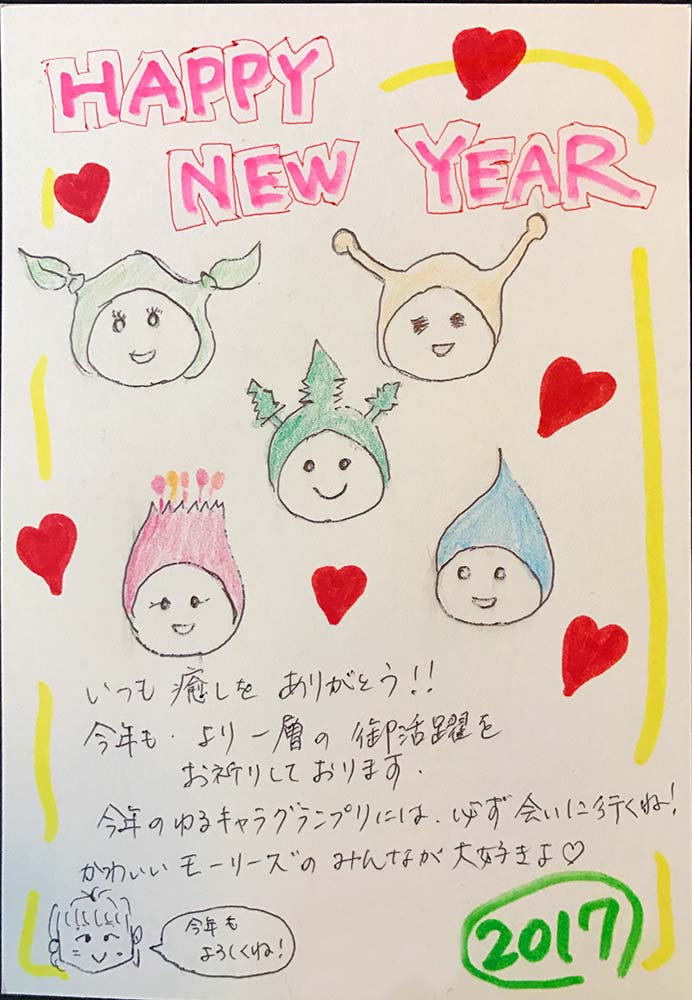 HAPPY
NEW YEAR
いつも 癒しを ありがとう!!
今年も、より一層の 御活躍を
お祈りしております.
今年のゆるキャラグランプリには、必ず会いに行くね!
かわいい モーリーズの みんなが 大好きよ♡
今年も
よろしくね!
2017